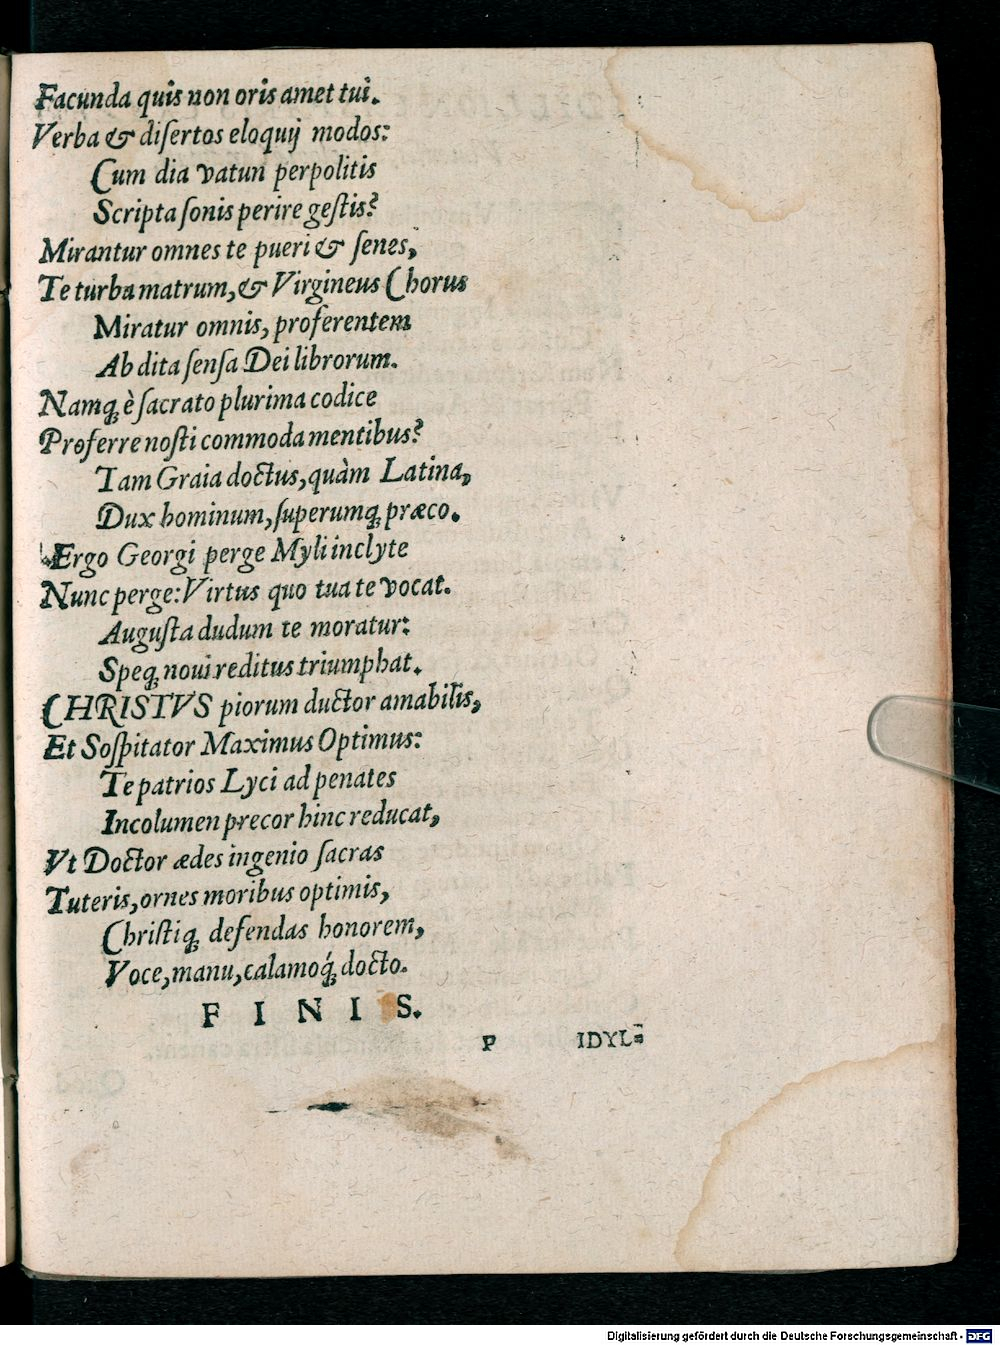 Facunda quis non oris amet tui.
Verba & diſertos eloquij modos:
Cum dia vatun perpolitis
Scripta ſonis perire geſtis?
Mirantur omnes te pueri & ſenes,
Te turba matrum, & Virgineus Chorus
Miratur omnis, proferentem
Abdita ſenſa Dei librorum.
Namq́; è ſacrato plurima codice
Proferre noſti commoda mentibus?
Tam Graia doctus, quàm Latina,
Dux hominum, ſuperumq́; præco.
Ergo Georgi perge Myli inclyte
Nunc perge: Virtus quo tua te vocat.
Auguſta dudum te moratur:
Speq́; noui reditus triumphat.
CHRISTVS piorum ductor amabilis,
Et Soſpitator Maximus Optimus:
Te patrios Lyci ad penates
Incolumen precor hinc reducat,
Vt Doctor ædes ingenio ſacras
Tuteris, ornes moribus optimis,
Chriſtiq́; defendas honorem,
Voce, manu, calamoq́; docto.
F I N I S.
P IDYL⸗
Digitalisierung gefördert durch die Deutsche Forschungsgemeinschaft - DFG